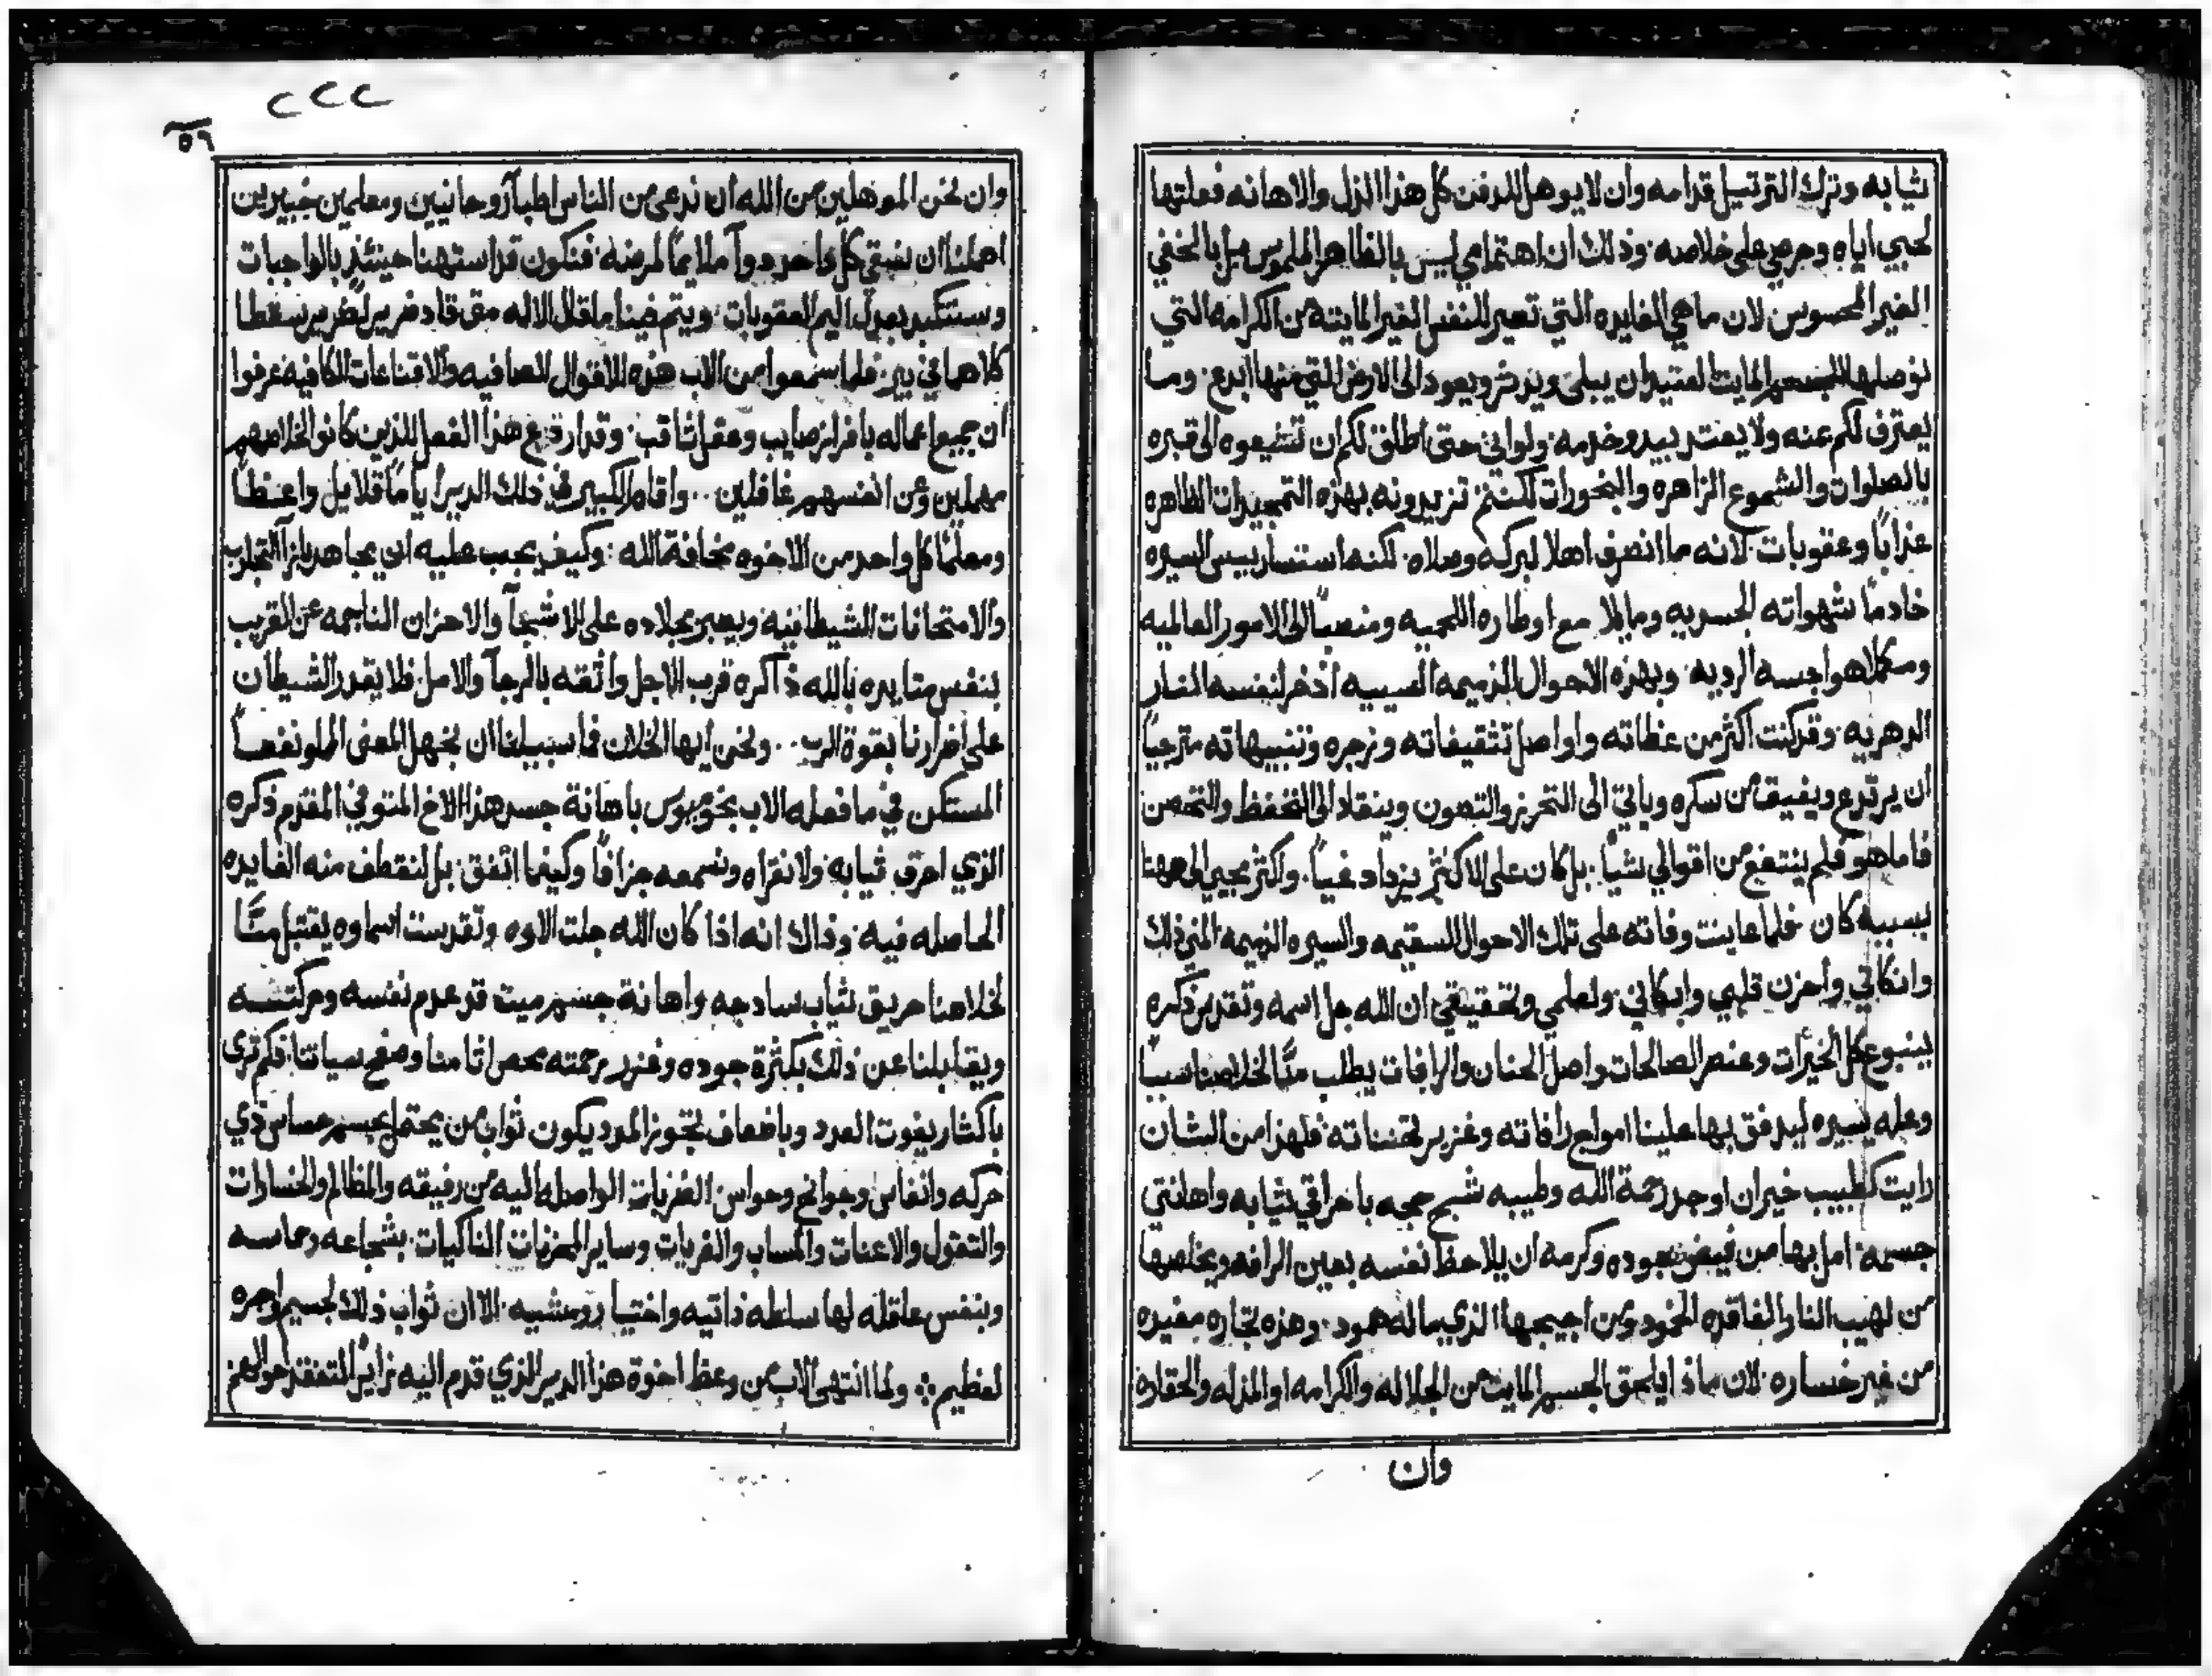 ثيابه وترك الترتيل قدامه وان لا يوهل للدفن كل هذا الذل والاهانه فعلتها
لحبي اياه وحرصي على خلاصه وذلك ان اهتمامي ليس بالظاهر الملموس بل بالخفي
الغير المحسوس لان ما هي الفايده التي تصير للنفس الغير المايته من الكرامه التي
نوصلها للجسم المايت العتيد ان يبلى ويندثر ويعود الى الارض التي منها ابدع وما
يعترف لكم عنه ولا يعتد بيد وخدمه ولو اني حتى اطلق لكم ان تشيعوه الى قبره
بالصلوات والشموع الزاهره والبخورات لكنتم تزيدونه بهذه التمجيدات الظاهره
عذابا وعقوبات لانه ما انصرف اهلا لبركه وصلاه لكنه استسار ببيس السيره
خادما شهواته الجسديه ومايلا مع اوطاره اللحميه ومنصبا الى الامور العالميه
ومكملا هواجسه الرديه وبهذه الاحوال الذميمه المسيبيه اذخر لنفسه المضار
الدهريه وقد كنت اكثر من عظاته واواصل تثقيفاته وزجره وتنبيهاته مترجيا
ان يرتدع ويفيق من سكره وياتي الى التحرز والتصون وينقاد الى التحفظ والتحصن
فاما هو فلم ينتفع من اقوالي شيا بل كان على الاكثر يزداد غيا واكثر مجيي الى ههنا
بسببه كان فلما عاينت وفاته على تلك الاحوال السقيمه والسيره الذميمه المني ذلك
وانكاني واحزن قلبي وابكاني ولعلمي وتحقيقي ان الله جل اسمه وتقدس ذكره
ينبوع كل الخيرات وعنصر الصالحات واصل الحنان والرافات يطلب منا لخلاصنا سببا
وعله يسيره ليدفق بها علينا امواج رافاته وغزير تحننانه فلهذا من الشان
رايت كطبيب خير ان اوجد رحمة الله وطيبه شبح حجه باحراقي ثيابه واهانتي
جسمه امل بها من فيض جوده وكرمه ان يلاحظ نفسه بعين الرافه ويخلصها
من لهيب النار الفاقده الخمود ومن اجيجها الذي ما له همود وهذه تجاره مفيده
من غير خساره لان ماذا يلحق الجسم المايت من الجلاله والكرامه او المذله والحقاره
وان
٢٢٢
٥٦
وان نحن الموهلين من الله ان ندعى من الناس اطبآ روحانيين ومعلمين خبيرين
اهملنا ان نسقي كل واحد دوآ ملايما لمرضه فنكون قد استهنا حينئذ بالواجبات
وسنتكبد بعدل اليم العقوبات ويتم فينا ما قال الاله متى قاد ضرير لضرير سقطا
كلاهما في بير فلما سمعوا من الاب هذه الاقوال الصافيه والاقناعات الكافيه عرفوا
ان جميع اعماله بافراز صايب وعقل ثاقب وقد اردع هذا الفعل الذين كانوا لخلاصهم
مهملين وعن انفسهم غافلين واقام الكبير في ذلك الدير اياما قلايل واعظا
ومعلما كل واحد من الاخوه مخافة الله وكيف يجب عليه ان يجاهد بازآ التجارب
والامتحانات الشيطانيه ويصبر بجلاده على الاشجآ والاحزان الناجمه عن القريب
بنفس متايده بالله ذاكره قرب الاجل واثقه بالرجآ والامل فلا يقدر الشيطان
على اضرارنا بقوة الرب ونحن ايها الخلان فما سبيلنا ان نجهل المعنى المملو نفعا
المستكن في ما فعله الاب بخوميوس باهانة جسد هذا الاخ المتوفي المقدم ذكره
الذي احرق ثيابه ولا نقراه ونسمعه جزافا وكيفما اتفق بل لنقطف منه الفايده
الحاصله فيه وذاك انه اذا كان الله جلت الاوه وتقدست اسماوه يقتبل منا
لخلاصنا حريق ثياب ساذجه واهانة جسم ميت قد عدم نفسه وحركته
ويقابلنا عن ذلك بكثرة جوده وغزر رحمته بمحص اثامنا وصفح سياتنا فكم ترى
باكثار يفوت العدد وباضعاف تجوز المدد يكون ثواب من يحتمل بجسم حساس ذي
حركه وانفاس وجوانح وحواس الضربات الواصله اليه من رفيقه والمظالم والخسارات
والتقول والاعنات والمساب والفريات وساير المحزنات الناكيات بشجاعه وحماسه
وبنفس عاقله لها سلطه ذاتيه واختيار ومشيه الا ان ثواب ذلك لجسيم واجره
لعظيم ولما انتهى الاب من وعظ اخوة هذا الدير الذي قدم اليه زايرا لتفقد احوالهم